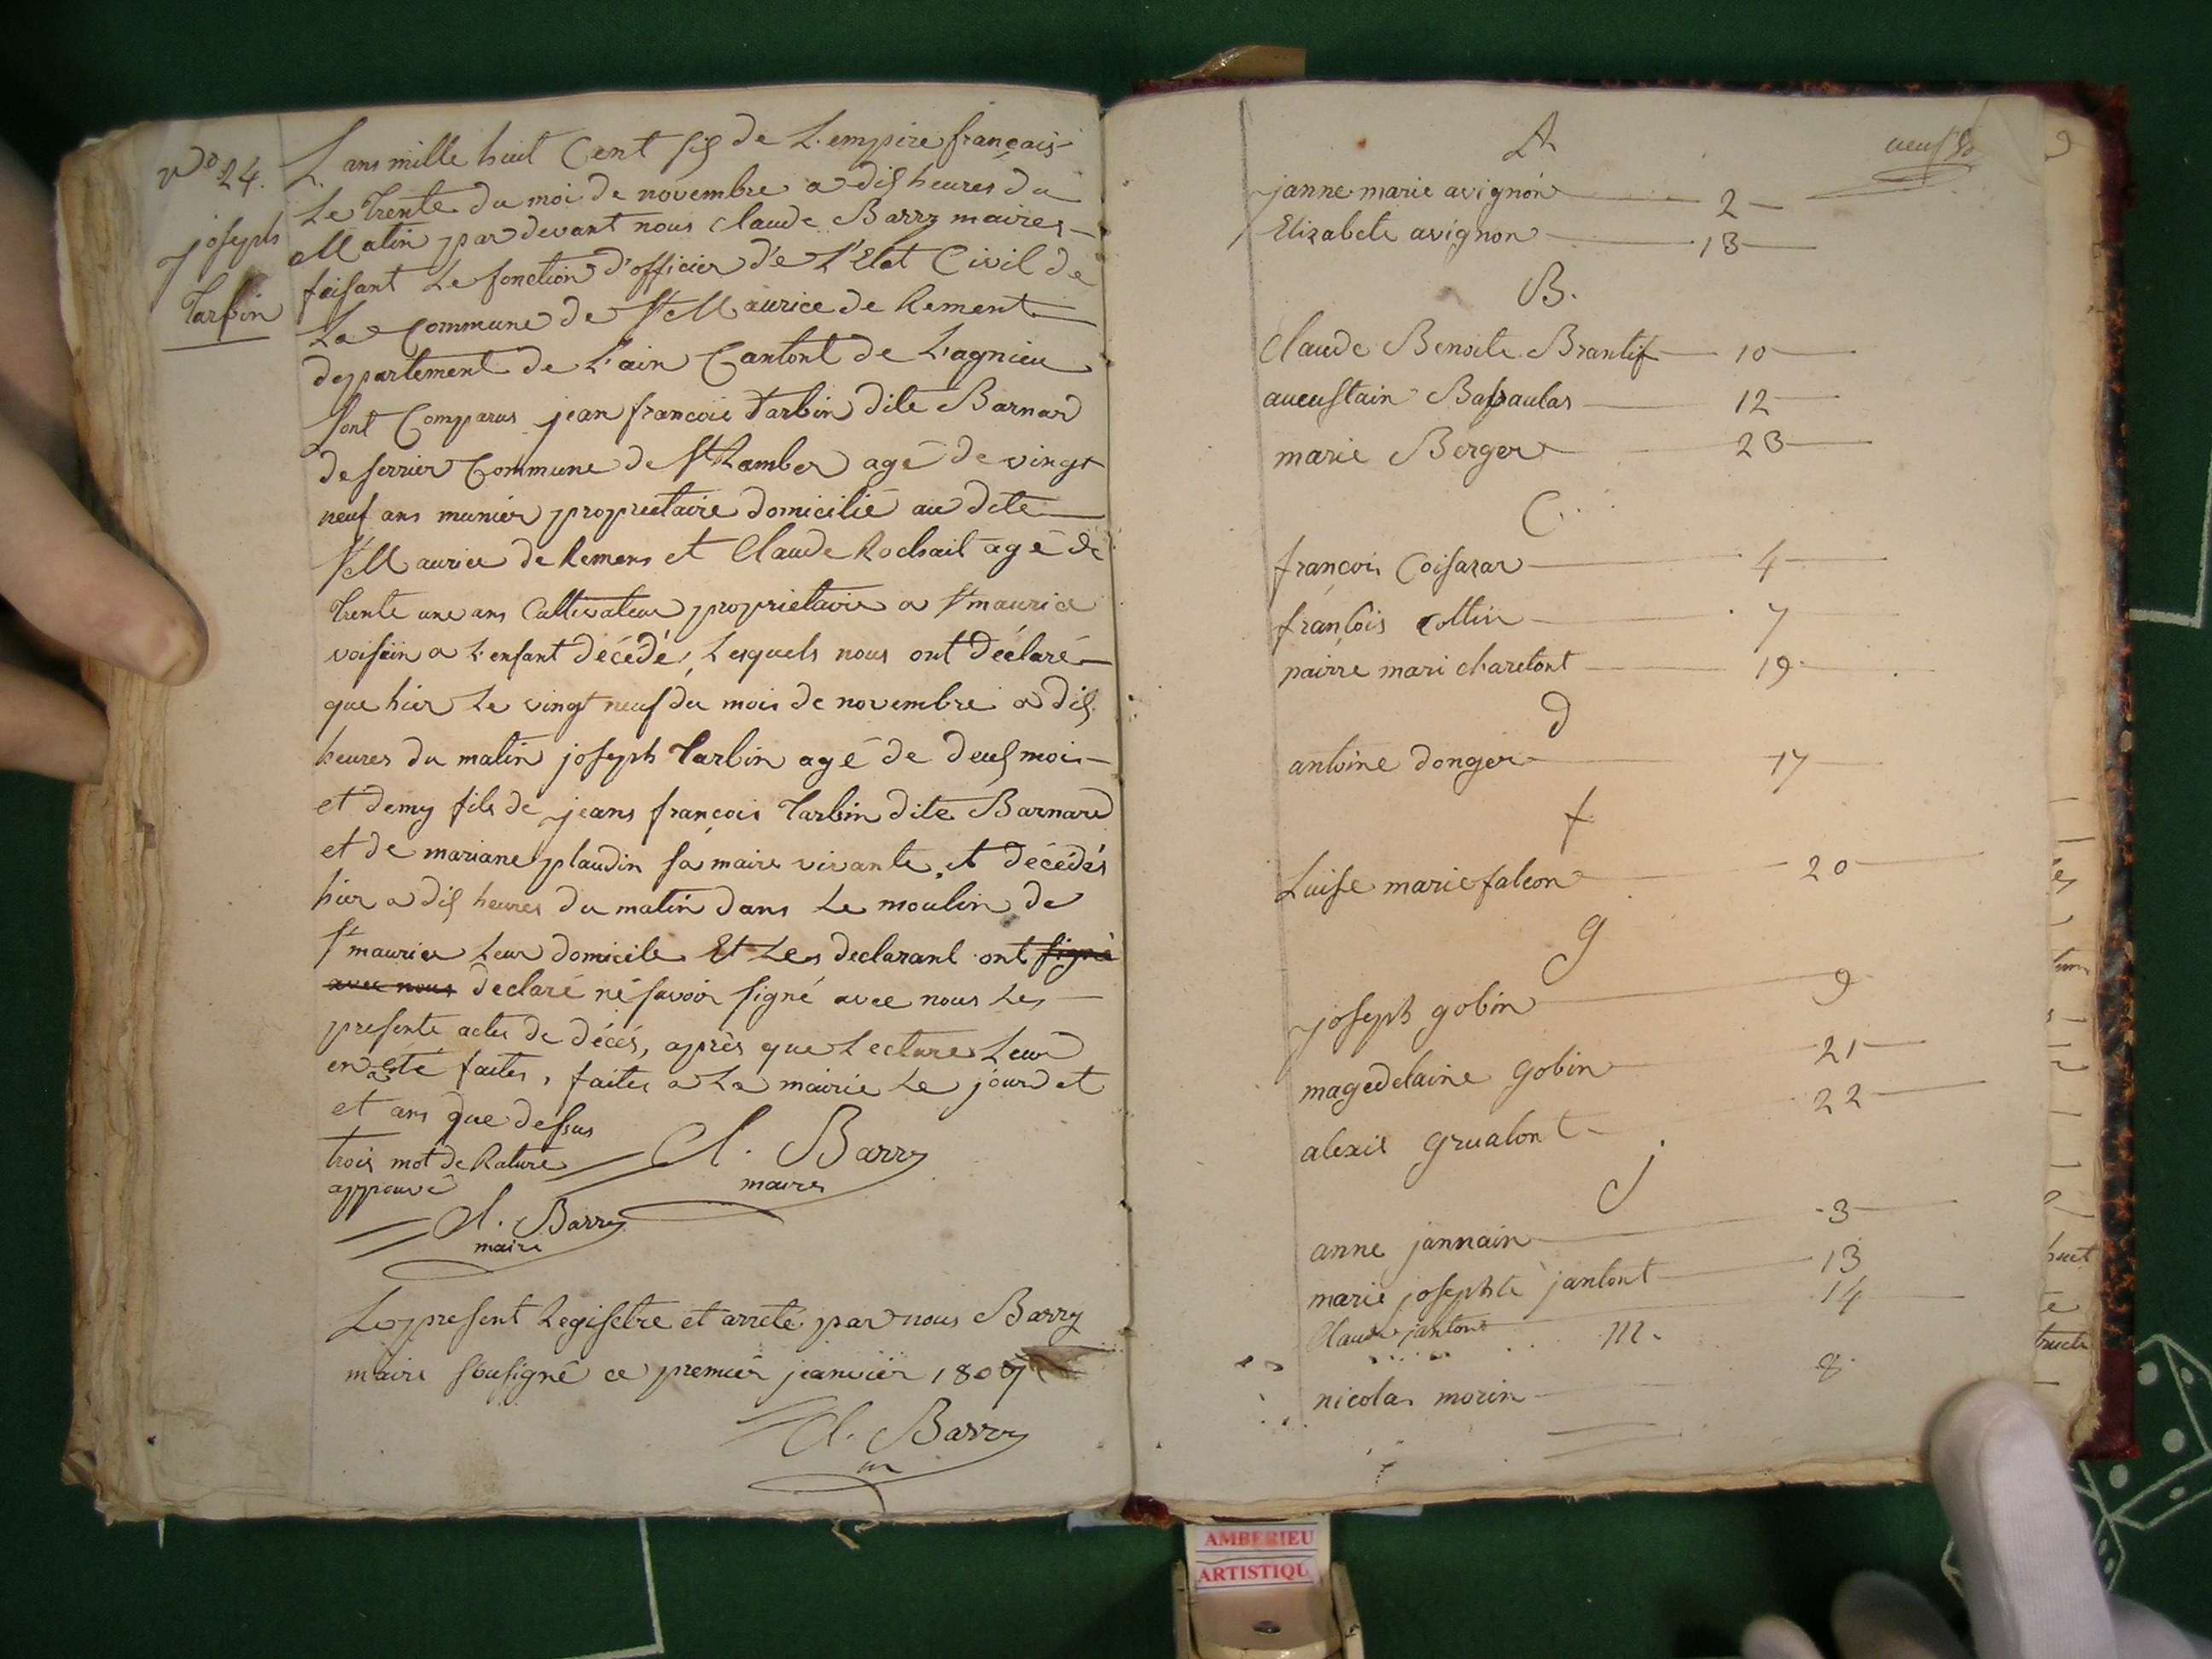 No 24.
joseph
Tarbin
L'ans mille huit Cent six de L'empire français
Le Trente du moi de novembre a dix heures du
Matin par devant nous Claude Barry maires
faisant Le fonction d'officier de L'Etat Civil de
La Commune de St Maurice de Rement
departement de L'ain Cantont de L'agnieu
Sont Comparus jean francois Tarbin dite Barnar
de serrier Commune de St Ramber agé de vingt
neuf ans munier proprietaire domicilié au dite
St Maurice de Remens et Claude Rochait agé de
Trente une ans Cultivateur proprietaire a St maurice
voisin a L'enfant décédé, Lesquels nous ont déclaré
que hier Le vingt neuf du mois de novembre a dix
heures du matin joseph Tarbin agé de deux mois
et demy fils de jeans françois Tarbin dite Barnard
et de mariane plaudin sa maire vivante, et décédés
hier a dix heures du matin dans Le moulin de
St maurice Leur domicile Et Les declarant ont signé
avec nous declaré ne savoir signé avec nous Les
presente actes de décés, après que Lecture Leur
en a été faites, faites a La mairie Le jour et
et ans que dessus
trois mot de Rature
appouvé
Cl. Barry
maires
Cl. Barry
maire
Le present Registre et arreté par nous Barry
maire sousigné ce premier janvier 1807
Cl. Barry
A
janne marie avignon 2
Elizabete avignon 13
B.
Claude Benoite Brantif 10
aucustain Bassaulas 12
marie Berger 23
C
françois Coisarar 4
françois Collin 7
pairre mari charetont 19
d
antoine donger 17
f
Luise marie falcon 20
g
joseph gobin 9
magedelaine gobin 21
alexis grualont 22
j
anne jannain 3
marie josephte jantont 13
Claude jantont 14
m.
nicolas morin 8
AMBERIEU
ARTISTIQU